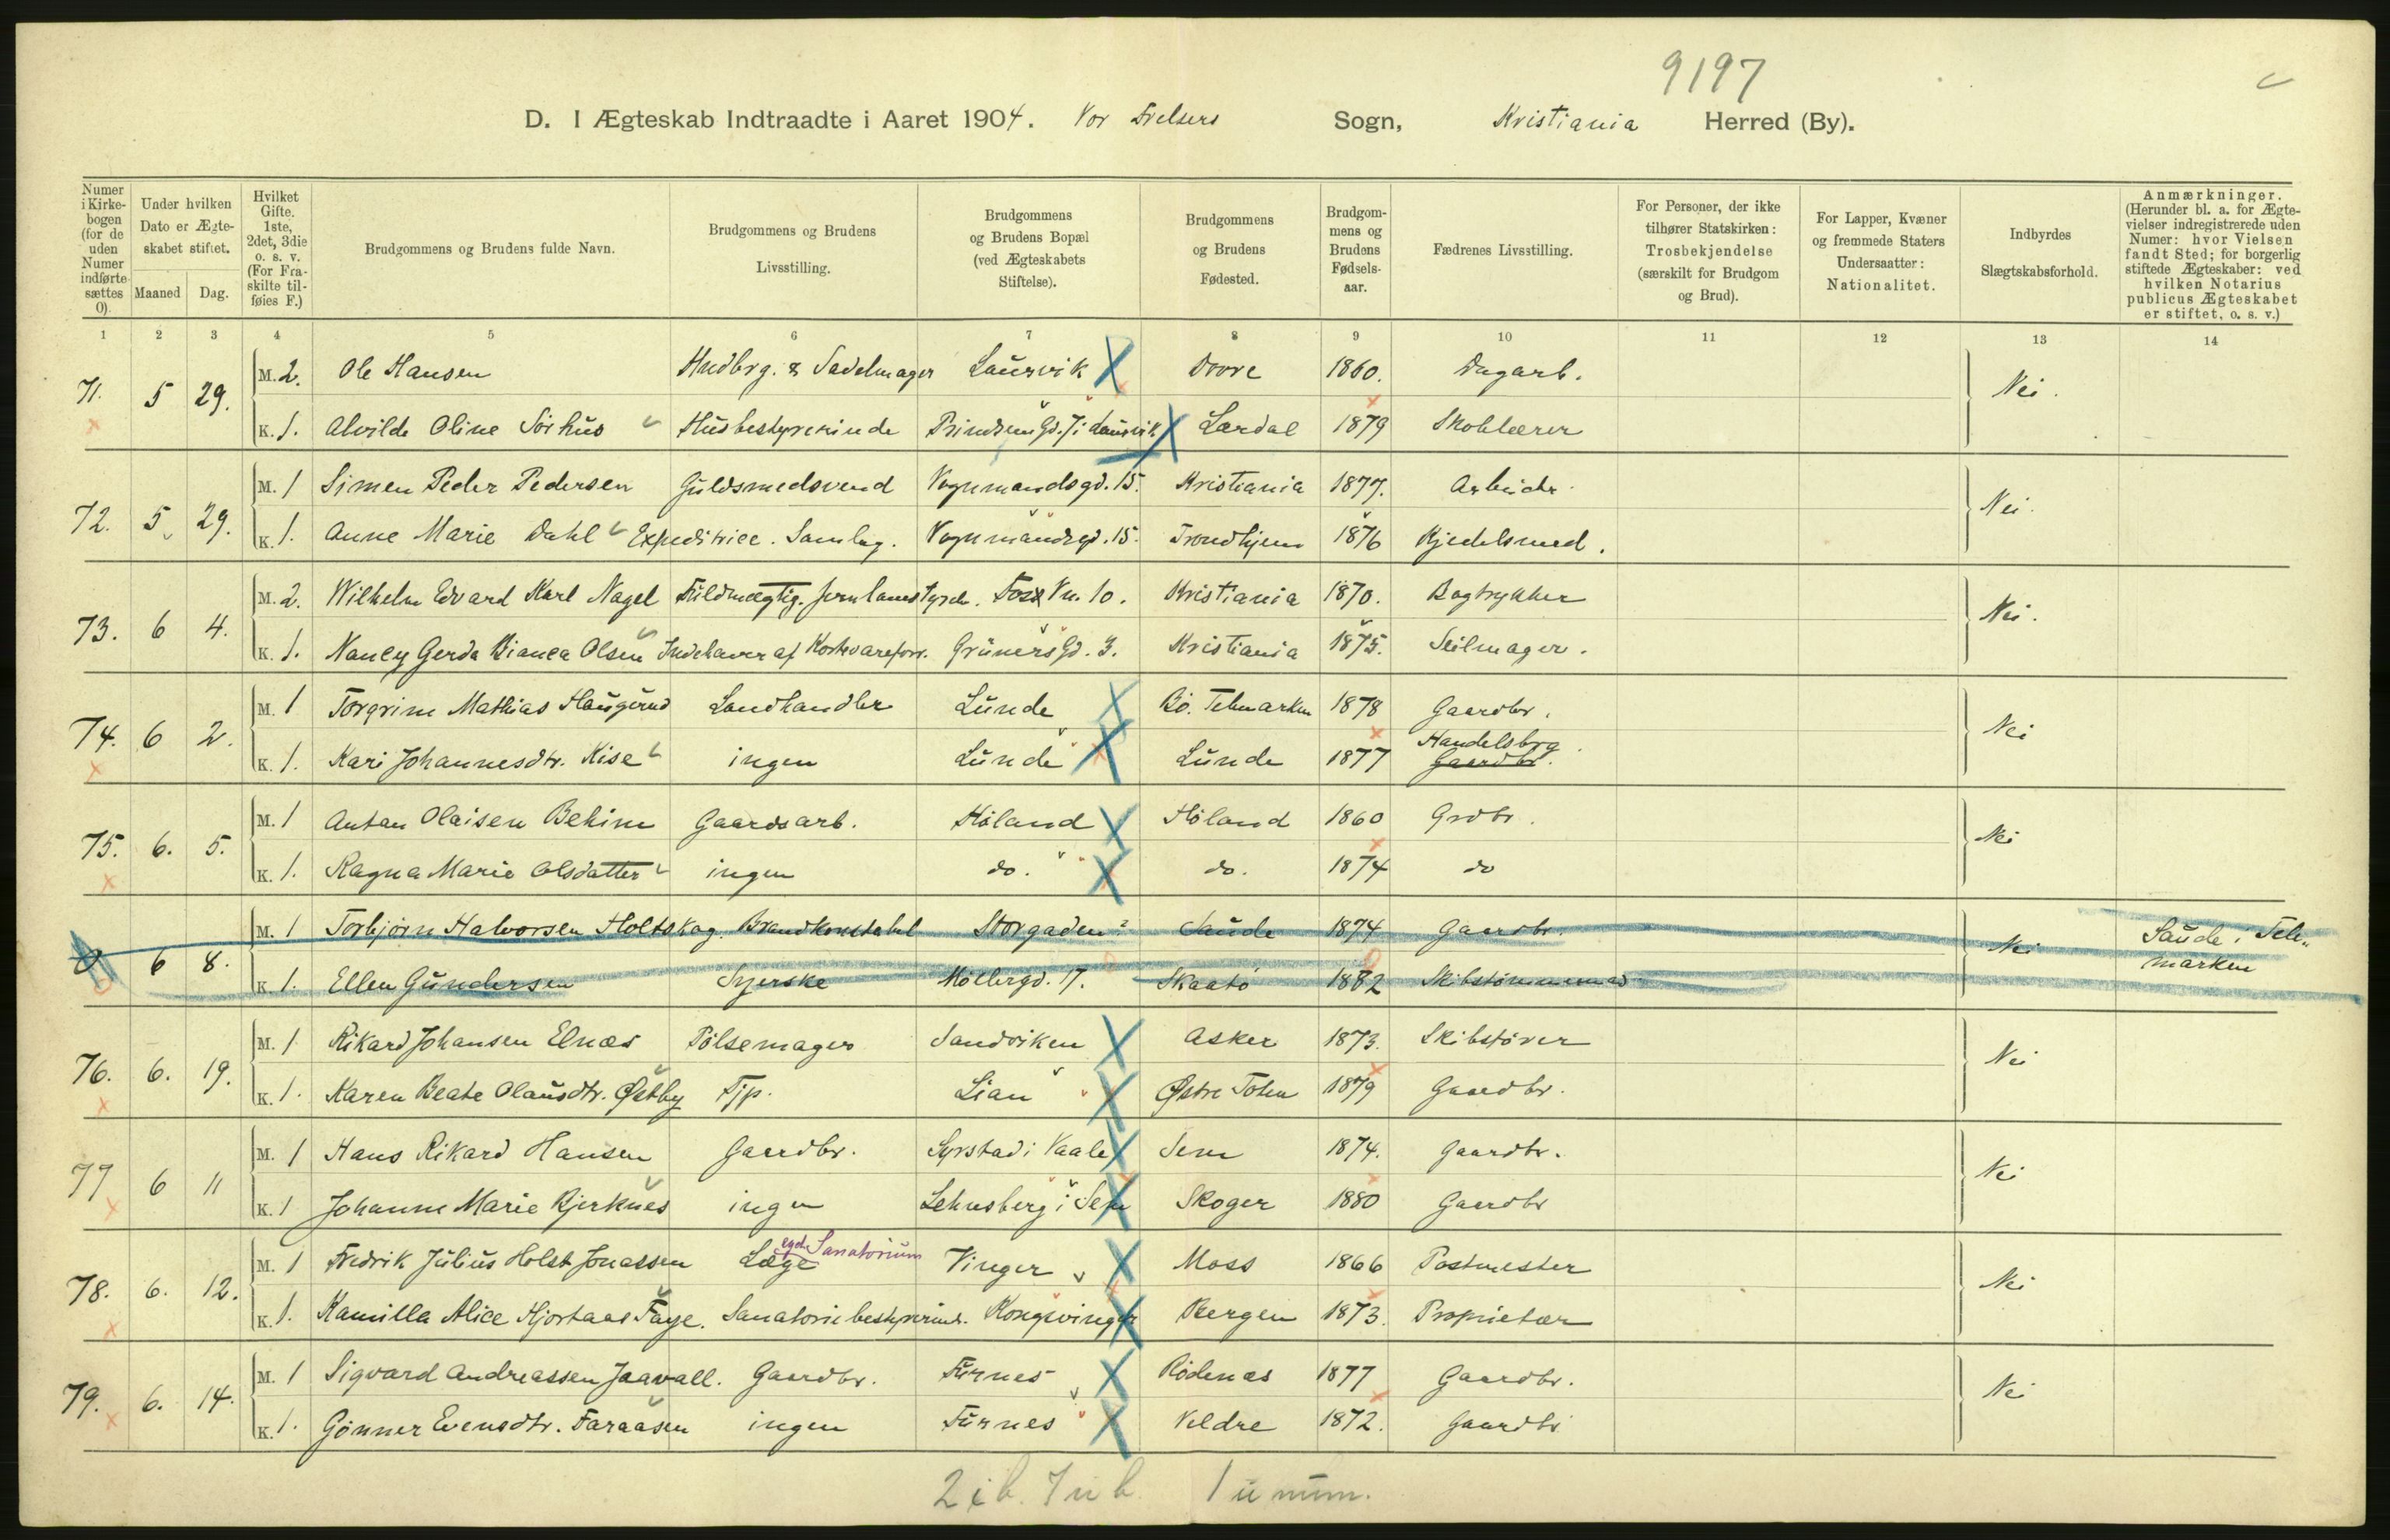 9197
D. I Ægteskab Indtraadte i Aaret 1904. Vor Frelsers Sogn, Kristiania Herred (By).
Numer i Kirkebogen (for de uden Numer indførte sættes 0).
Under hvilken Dato er Ægteskabet stiftet.
Maaned Dag.
Hvilket Gifte. 1ste, 2det, 3die o. s. v. (For Fraskilte tilføies F.)
Brudgommens og Brudens fulde Navn.
Brudgommens og Brudens Livsstilling.
Brudgommens og Brudens Bopæl (ved Ægteskabets Stiftelse).
Brudgommens og Brudens Fødested.
Brudgommens og Brudens Fødselsaar.
Fædrenes Livsstilling.
For Personer, der ikke tilhører Statskirken: Trosbekjendelse (særskilt for Brudgom og Brud).
For Lapper, Kvæner og fremmede Staters Undersaatter: Nationalitet.
Indbyrdes Slægtskabsforhold.
Anmærkninger. (Herunder bl. a. for Ægtevielser indregistrerede uden Numer: hvor Vielsen fandt Sted; for borgerlig stiftede Ægteskaber: ved hvilken Notarius publicus Ægteskabet er stiftet, o. s. v.)
1 2 3 4 5 6 7 8 9 10 11 12 13 14
71. 5 29. M. 2. Ole Hansen Hndbrg. & Sadelmager Laurvik Dovre 1860. Dagarb. Nei.
K. 1. Alvilde Oline Sörhus Husbestyrerinde Prindsens Gd. 7 i Laurvik Lardal 1879 Skolelærer
72. 5 29. M. 1 Simen Peder Pedersen Guldsmedsvend Vognmandsgd. 15. Kristiania 1877. Arbeider Nei.
K. 1. Anne Marie Dahl Expeditrice. Samlag. Vognmandsgd. 15. Trondhjem 1876 Kjedelsmed.
73. 6 4. M. 2. Wilhelm Edvard Karl Nagel Fuldmægtig. Jernbanestyrels. Foss Vn. 10. Kristiania 1870. Bogtrykker Nei.
K. 1. Nancy Gerda Bianca Olsen Indehaver af Kortevareforr. Grüners Gd. 3. Kristiania 1875. Seilmager.
74. 6 2. M. 1 Torgrim Mathias Haugerud Landhandler Lunde Bö. Telemarken 1878 Gaardbr. Nei
K. 1. Kari Johannesdtr. Kise ingen Lunde Lunde 1877 Handelsbrg Gaardbr.
75. 6. 5. M. 1 Anton Olaisen Bekim Gaardsarb. Höland Höland 1860 Grdbr. Nei
K. 1. Ragna Marie Olsdatter ingen do. do. 1874 do
0 6 8. M. 1 Torbjörn Halvorsen Holtskog. Brandkonstabel Storgaden 2 Saude 1874 Gaardbr. Nei Saude i Telemarken
K. 1. Ellen Gundersen Syerske Möllergd. 17. Skaatö 1882 Skibstömmermand
76. 6. 19. M. 1 Rikard Johansen Elnæs Pölsemager Sandviken Asker 1873. Skibstöver Nei
K. 1. Karen Beate Olausdtr. Østby Tjp. Lian Østre Toten 1879 Gaardbr.
77 6 11 M. 1 Hans Rikard Hansen Gaardbr. Syrstad i Vaale Sem 1874. Gaardbr. Nei
K. 1 Johanne Marie Bjerknes ingen Lehnsberg i Sem Skoger 1880 Gaardbr
78. 6. 12. M. 1 Fredrik Julius Holst Jonassen Læge Sanatorium Vinger Moss 1866 Postmester Nei
K. 1. Kamilla Alice Hjortaas Faye. Sanatoriebestyrerinde. Kongsvinger Bergen 1873. Proprietær
79. 6. 14. M. 1 Sigvard Andreassen Jaavall. Gaardbr. Furnes Rödenæs 1877 Gaardbr. Nei
K. 1. Gönner Evensdtr. Faraasen ingen Furnes Veldre 1872. Gaardbr
2 i b. 7 u b. 1 u num.